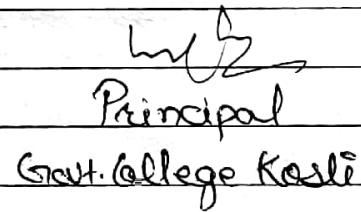 Principal
Govt. College Kosli